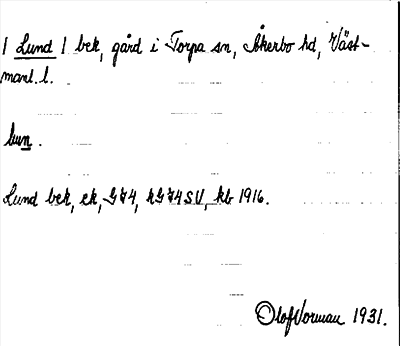 / Lund / bek, gård i Torpa sn, Åkerbo hd, Väst-
manl. l.
lun̲.
Lund bek, ek, G74, kG74SV, kb 1916.
Olof Vorman 1931.